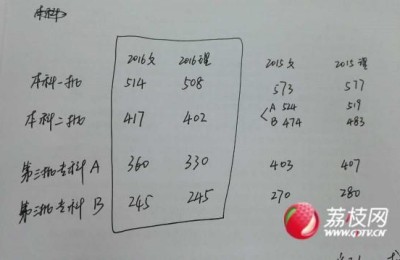 本科
2016文 2016理 2015文 2015理
本科一批 514 508 573 577
本科二批 417 402 A 524 519
B 474 483
第三批专科A 360 330 403 407
第三批专科B 245 245 270 280
荔枝网
www.GDTV.CN